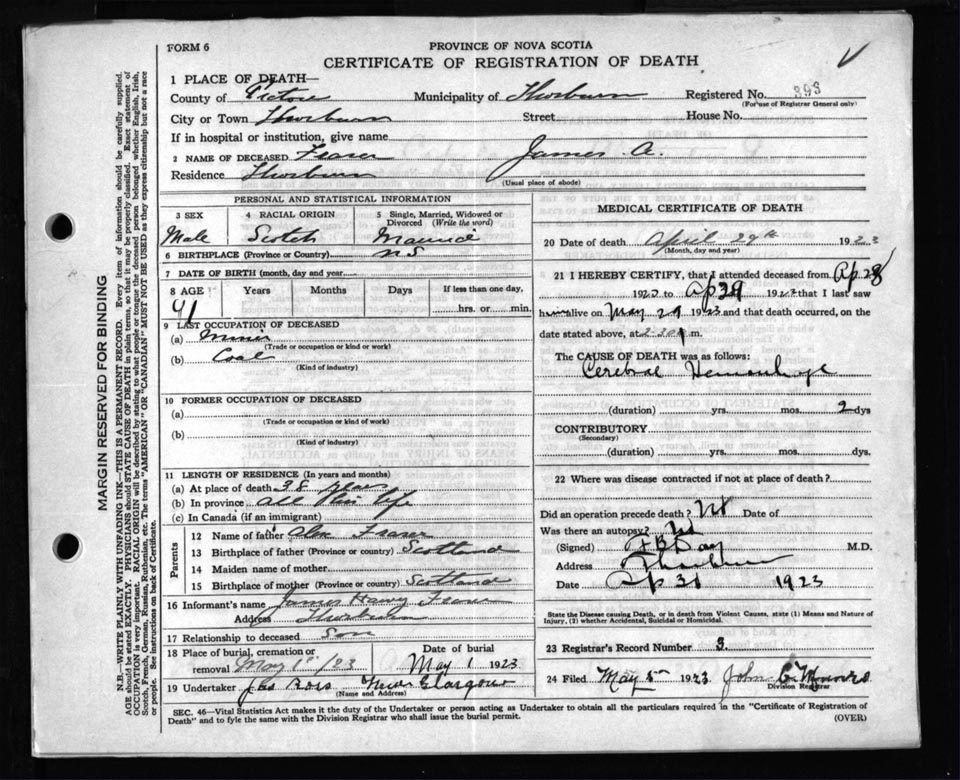 FORM 6
PROVINCE OF NOVA SCOTIA
CERTIFICATE OF REGISTRATION OF DEATH
1 PLACE OF DEATH—
County of Pictou Municipality of Thorburn Registered No. 393
(For use of Registrar General only)
City or Town Thorburn Street House No.
If in hospital or institution, give name
2 NAME OF DECEASED Fraser James A.
Residence Thorburn
(Usual place of abode)
PERSONAL AND STATISTICAL INFORMATION
3 SEX 4 RACIAL ORIGIN 5 Single, Married, Widowed or Divorced (Write the word)
Male Scotch Married
6 BIRTHPLACE (Province or Country) N S
7 DATE OF BIRTH (month, day and year)
8 AGE Years Months Days If less than one day,
41 hrs. or min.
9 LAST OCCUPATION OF DECEASED
(a) Miner
(Trade or occupation or work)
(b) Coal
(Kind of industry)
10 FORMER OCCUPATION OF DECEASED
(a)
(Trade or occupation or kind of work)
(b)
(Kind of industry)
11 LENGTH OF RESIDENCE (In years and months)
(a) At place of death 38 years
(b) In province all his life
(c) In Canada (if an immigrant)
Parents
12 Name of father Alex Fraser
13 Birthplace of father (Province or country) Scotland
14 Maiden name of mother
15 Birthplace of mother (Province or country) Scotland
16 Informant's name James Harvy Fraser
Address Thorburn
17 Relationship to deceased Son
18 Place of burial, cremation or removal May 1st/23
Date of burial
May 1 1923
19 Undertaker Bros New Glasgow
(Name and Address)
MEDICAL CERTIFICATE OF DEATH
20 Date of death April 29th 1923
(Month, day and year)
21 I HEREBY CERTIFY, that I attended deceased from Ap. 28
1923 to Ap 29 1923 that I last saw
him alive on May 29 1923 and that death occurred, on the
date stated above, at m.
The CAUSE OF DEATH was as follows:
Cerebral Hemorrhage
(duration) yrs. mos. 2 dys
CONTRIBUTORY
(Secondary)
(duration) yrs. mos. dys.
22 Where was disease contracted if not at place of death?
Did an operation precede death? Date of
Was there an autopsy?
(Signed) Day M.D.
Address Thorburn
Date Ap 31 1923
State the Disease causing Death, or in death from Violent Causes, state (1) Means and Nature of
Injury, (2) whether Accidental, Suicidal or Homicidal.
23 Registrar's Record Number 3
24 Filed May 1923 John
Division Registrar
SEC. 46—Vital Statistics Act makes it the duty of the Undertaker or person acting as Undertaker to obtain all the particulars required in the "Certificate of Registration of
Death" and to fyle the same with the Division Registrar who shall issue the burial permit.
(OVER)
MARGIN RESERVED FOR BINDING
N.B.—WRITE PLAINLY WITH UNFADING INK—THIS IS A PERMANENT RECORD. Every item of information should be carefully supplied.
AGE should be stated EXACTLY. PHYSICIANS should STATE CAUSE OF DEATH in plain terms, so that it may be properly classified. Exact statement of
OCCUPATION is very important. RACIAL ORIGIN will be described by stating to what people or tongue the deceased person belonged whether English, Irish,
Scotch, French, German, Russian, Ruthenian, etc. The terms "AMERICAN" OR "CANADIAN" MUST NOT BE USED as they express citizenship but not a race
or people. See instructions on back of Certificate.